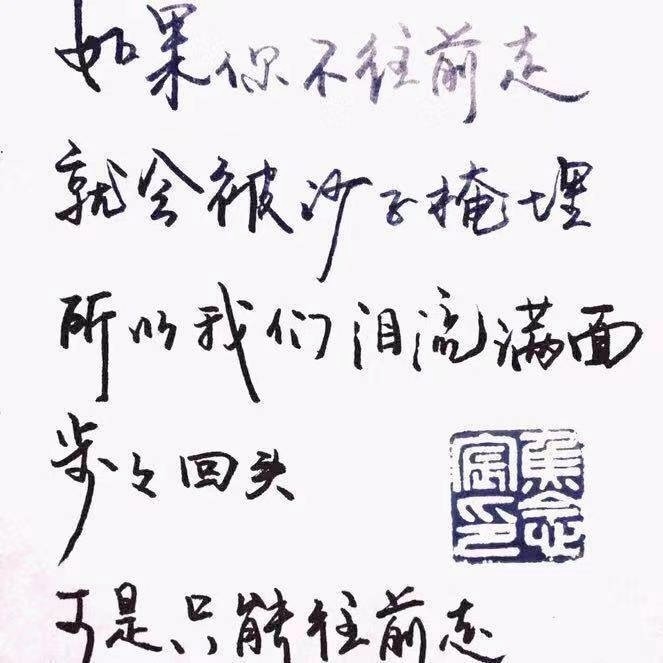 如果你不往前走
就会被沙子掩埋
所以我们泪流满面
步々回头
可是只能往前走